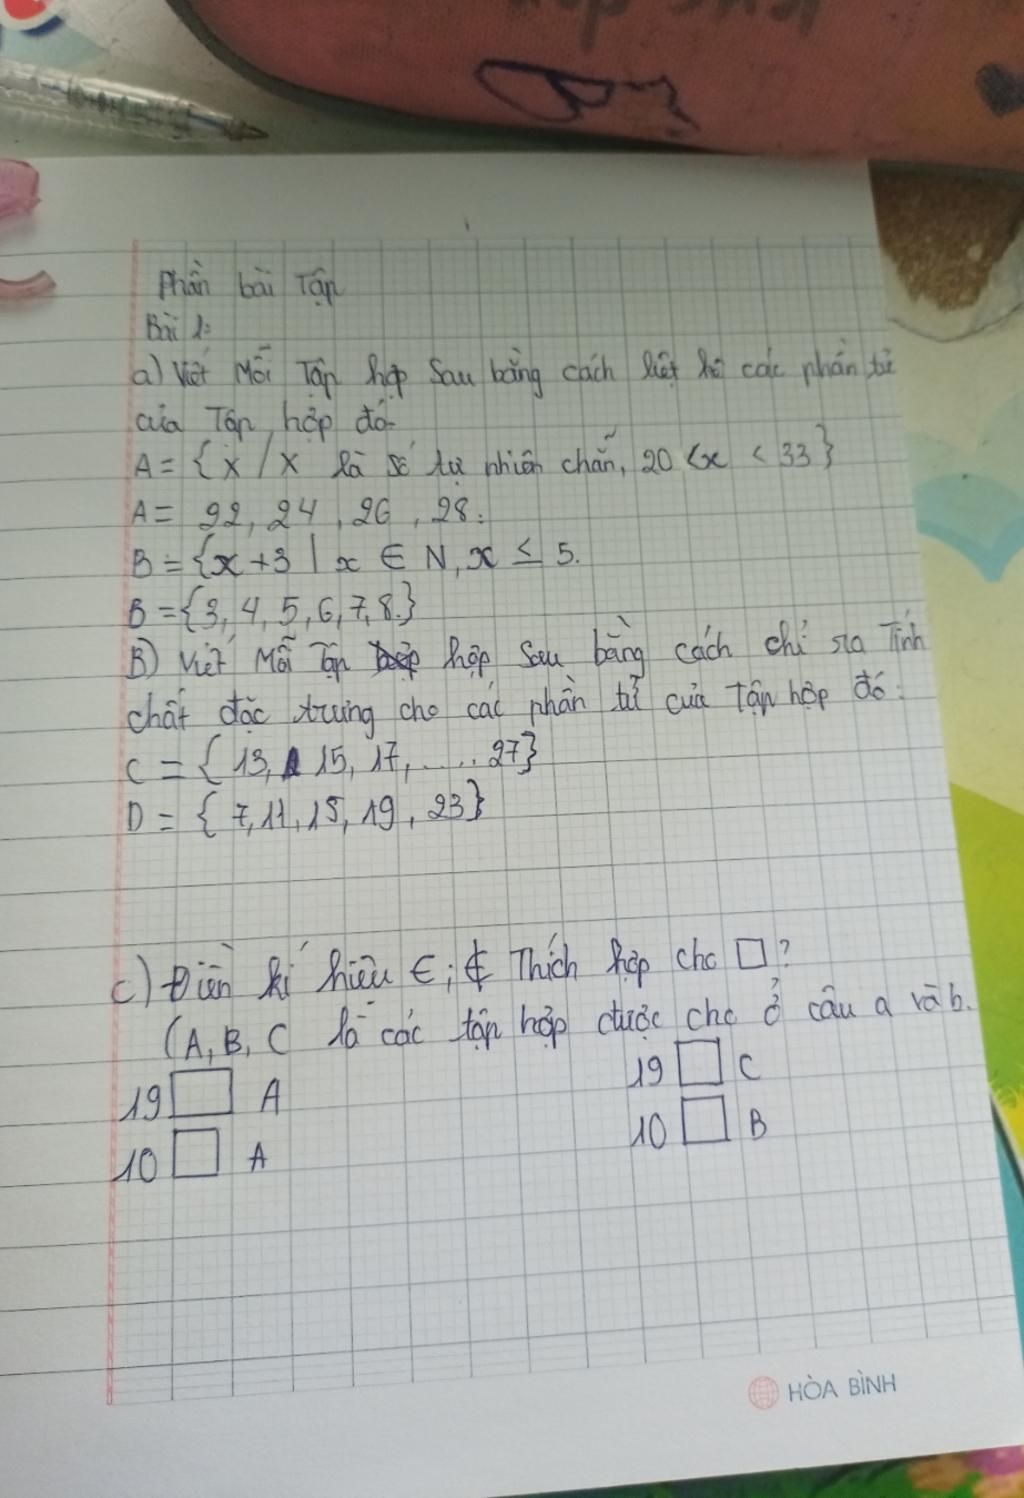 Phần bài Tập
Bài 1:
a) Viết Mỗi Tập hợp Sau bằng cách liệt kê các phần tử
của Tập hợp đó
A = { x / x là số tự nhiên chẵn, 20 < x < 33 }
A = 22, 24, 26, 28.
B = {x + 3 | x ∈ N, x ≤ 5.
B = {3, 4, 5, 6, 7, 8.}
B) Viết Mỗi Tập hợp Sau bằng cách chỉ ra Tính
chất đặc trưng cho các phần tử của Tập hợp đó:
C = { 13, 15, 17, ..... 27}
D = { 7, 11, 15, 19, 23}
c) Điền kí hiệu ∈; ∉ Thích hợp cho □?
(A, B, C là các tập hợp được cho ở câu a và b.
19 □ A 19 □ C
10 □ A 10 □ B
HÒA BÌNH